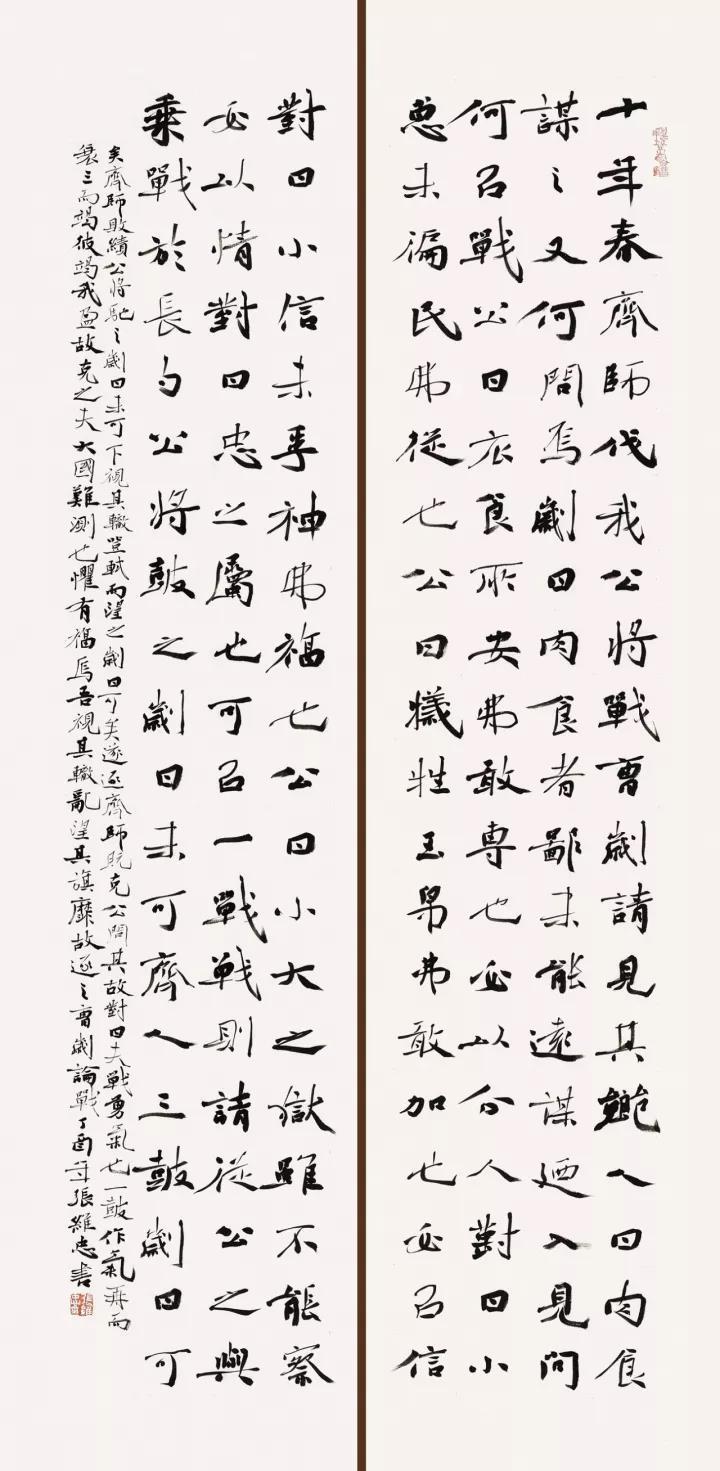 十年春齊師伐我公將戰曹劌請見其鄉人曰肉食
謀之又何間焉劌曰肉食者鄙未能遠謀廼入見問
何㠯戰公曰衣食所安弗敢專也必以分人對曰小
惠未徧民弗從也公曰犧牲玉帛弗敢加也必㠯信
對曰小信未孚神弗福也公曰小大之獄雖不能察
必以情對曰忠之屬也可㠯一戰戰則請從公之與
乘戰於長勺公將鼓之劌曰未可齊人三鼓劌曰可
矣齊師敗績公將馳之劌曰未可下視其轍登軾而望之劌曰可矣遂逐齊師既克公問其故對曰夫戰勇氣也一鼓作氣再而
衰三而竭彼竭我盈故克之夫大國難測也懼有福焉吾視其轍亂望其旗靡故逐之曹劌論戰丁酉年張維忠書